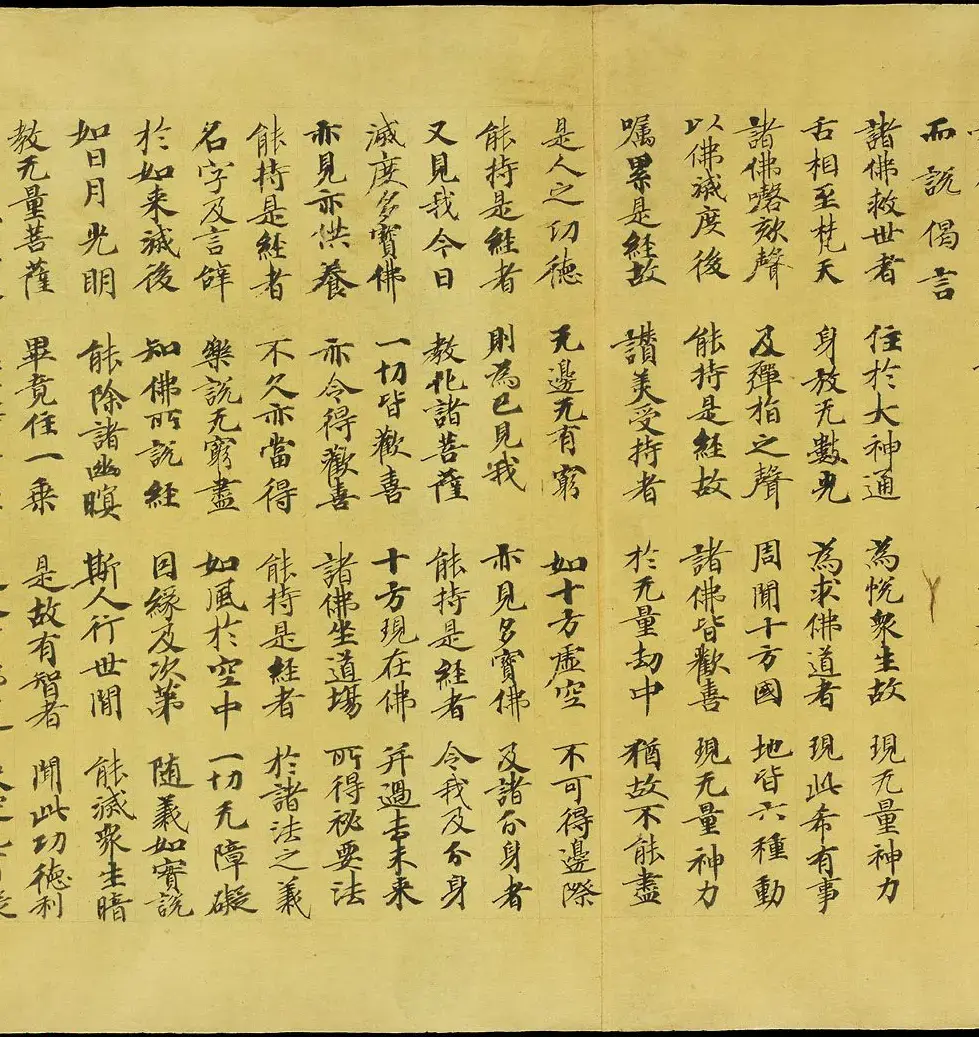 而說偈言
諸佛救世者 住於大神通 為悅衆生故 現无量神力
舌相至梵天 身放无數光 為求佛道者 現此希有事
諸佛謦欬聲 及彈指之聲 周聞十方國 地皆六種動
以佛滅度後 能持是經故 諸佛皆歡喜 現无量神力
嘱累是經故 讃美受持者 於无量劫中 猶故不能盡
是人之功德 无邊无有窮 如十方虛空 不可得邊際
能持是經者 則為已見我 亦見多寶佛 及諸分身者
又見我今日 教化諸菩薩 能持是經者 令我及分身
滅度多寶佛 一切皆歡喜 十方現在佛 并過去未来
亦見亦供養 亦令得歡喜 諸佛坐道場 所得祕要法
能持是經者 不久亦當得 能持是經者 於諸法之義
名字及言辝 樂說无窮盡 如風於空中 一切无障礙
於如来滅後 知佛所說經 因緣及次第 随義如實說
如日月光明 能除諸幽暝 斯人行世間 能滅衆生暗
教无量菩薩 畢竟住一乘 是故有智者 聞此功德利